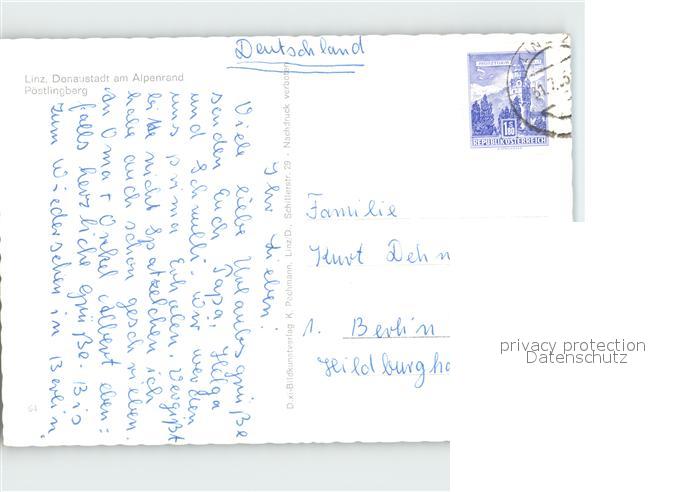 Deutschland
Linz, Donaustadt am Alpenrand
Pöstlingberg
Ihr Lieben!
Viele liebe Urlaubsgrüße
senden Euch Papa, Helga
und Schnulli. Wir werden
uns prima erholen. Vergißt
bitte nicht ich
habe auch schon geschrieben.
An Oma + Onkel Albert eben=
falls herzliche Grüße. Bis
zum Wiedersehen in Berlin.
D.xi-Bildkunstverlag K. Pochmann, Linz/D., Schillerstr. 29 - Nachdruck verboten
1.80
REPUBLIK ÖSTERREICH
Familie
Kurt Dehn
1. Berlin
Hildburgha
privacy protection
Datenschutz